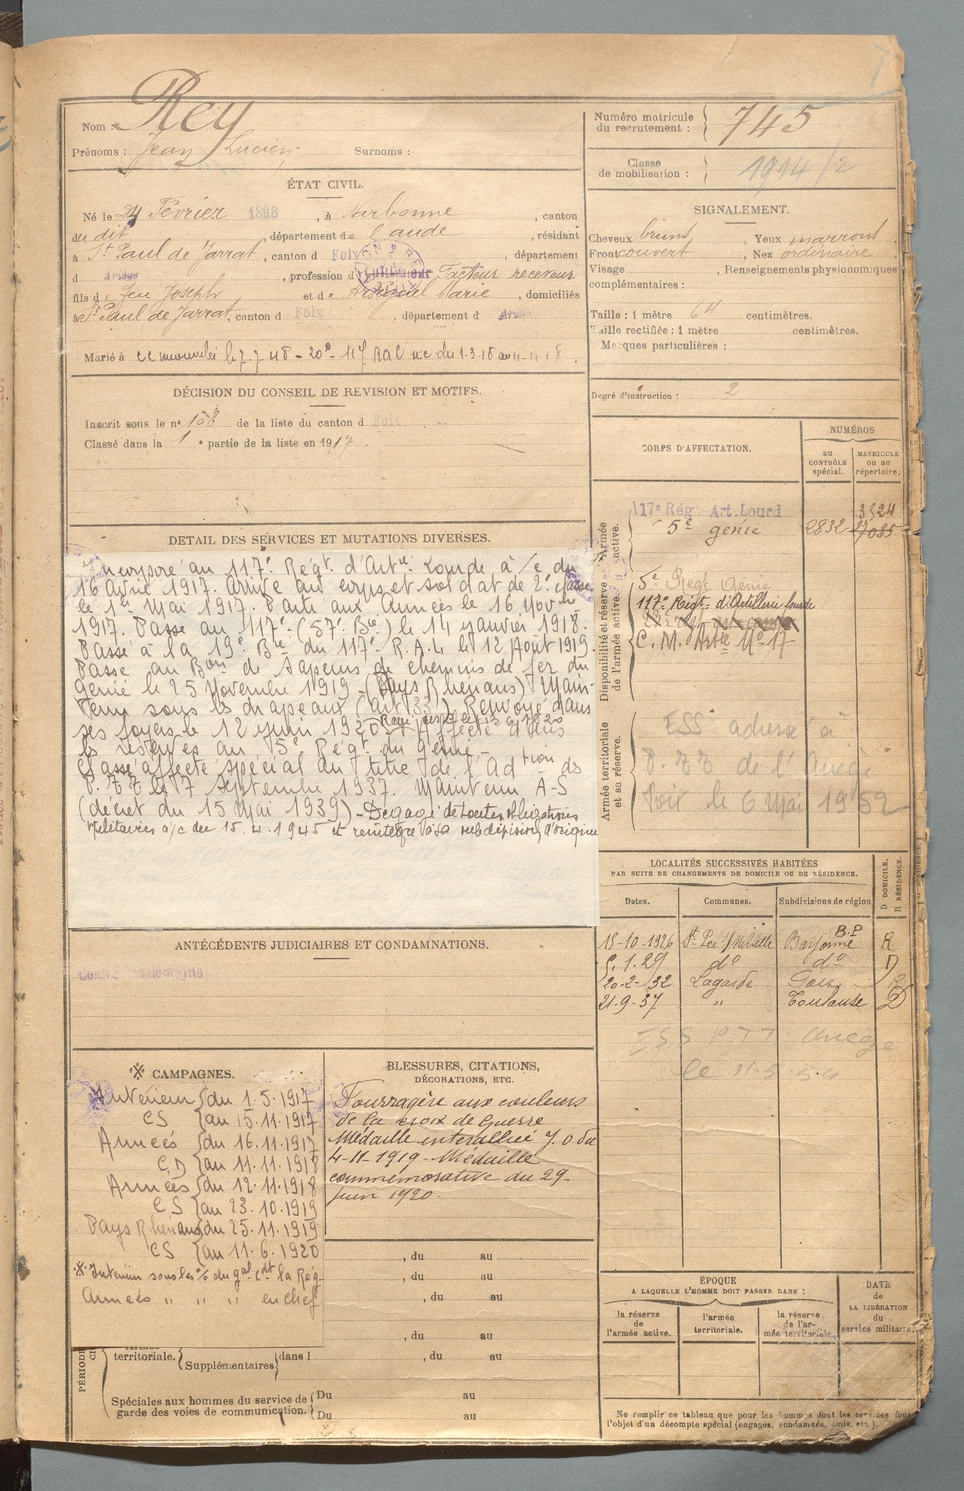 Nom : Rey
Prénoms : Jean Lucien Surnoms :
ÉTAT CIVIL.
Né le 24 Février 1898, à Narbonne, canton
du dit, département de l'aude, résidant
à St Paul de Jarrat, canton d Foix, département
d Ariège, profession d cultivateur Facteur receveur
fils d e feu Joseph et d e Marie, domiciliés
à St Paul de Jarrat, canton d Foix, département d Ariège
Marié à
DÉCISION DU CONSEIL DE REVISION ET MOTIFS.
Inscrit sous le n° 158 de la liste du canton d Foix
Classé dans la 1e partie de la liste en 1917
DETAIL DES SERVICES ET MUTATIONS DIVERSES.
Incorporé au 117e Régt d'Artie Lourde à /c du
16 Avril 1917. Arrivé au corps et soldat de 2e classe
le 1er Mai 1917. Parti aux Armées le 16 Novbre
1917. Passé au 117e (57e Bie) le 14 janvier 1918.
Passé à la 19e Bie du 117e R.A.L le 12 Août 1919.
Passé au Bon de Sapeurs de chemins de fer du
génie le 25 Novembre 1919 - (Pays Rhénans) Main-
tenu sous les drapeaux (art 33). Renvoyé dans
ses foyers le 12 juin 1920. Affecté dans
les réserves au 5e Régt du Génie -
Classé affecté spécial au titre de l'Adtion des
P.T.T le 7 Septembre 1937. Maintenu A-S
(décret du 15 Mai 1939) - Dégagé de toutes obligations
Militaires a/c du 15.4.1945 et réintégré à sa subdivision d'origine
ANTÉCÉDENTS JUDICIAIRES ET CONDAMNATIONS.
Contre Allemagne
※ CAMPAGNES.
Intérieur { du 1.5.1917
CS { au 15.11.1917
Armées { du 16.11.1917
CD { au 11.11.1918
Armées { du 12.11.1918
CS { au 23.10.1919
Pays Rhénans { du 25.11.1919
CS { au 11.6.1920
※ Intérieur sous les o/s du gal Cdt la Rég
Armées " " " en chef
BLESSURES, CITATIONS,
DÉCORATIONS, ETC.
Fourragère aux couleurs
de la croix de Guerre
Médaille interalliée J.O du
4-11-1919 - Médaille
commémorative du 29
juin 1920.
, du au
, du au
, du au
, du au
territoriale. Supplémentaires dans l , du au
Spéciales aux hommes du service de Du au
garde des voies de communication. Du au
Numéro matricule
du recrutement : 745
Classe
de mobilisation : 1914/2
SIGNALEMENT.
Cheveux bruns, Yeux marrons
Front couvert, Nez ordinaire
Visage , Renseignements physionomiques
complémentaires :
Taille : 1 mètre 64 centimètres.
Taille rectifiée : 1 mètre centimètres.
Marques particulières :
Degré d'instruction : 2
CORPS D'AFFECTATION.
NUMÉROS
AU CONTRÔLE spécial.
MATRICULE ou au répertoire.
Armée active.
117e Régt Art. Lourd 3524
5e génie 2832 17085
Disponibilité et réserve de l'armée active.
5e Régt Génie
117e Régt d'Artillerie Lourde
C. M. Artie No 17
Armée territoriale et sa réserve.
ESS adressé à
P.TT de l'Ariège
Foix le 6 Mai 1952
LOCALITÉS SUCCESSIVES HABITÉES
PAR SUITE DE CHANGEMENTS DE DOMICILE OU DE RÉSIDENCE.
D DOMICILE.
R RÉSIDENCE.
Dates. Communes. Subdivisions de région
15-10-1926 St Pée s/Nivelle Bayonne B.P R
5.1.29 do do D
20-2-32 Lagarde Foix R
21-9-37 " Toulouse D
ESS PTT Ariège
le 11-5-54
ÉPOQUE
A LAQUELLE L'HOMME DOIT PASSER DANS :
DATE
de
LA LIBÉRATION
du
service militaire.
la réserve
de
l'armée active.
l'armée
territoriale.
la réserve
de l'ar-
mée territoriale.
Ne remplir ce tableau que pour les hommes dont les services font
l'objet d'un décompte spécial (engagés, condamnés, omis, etc.).